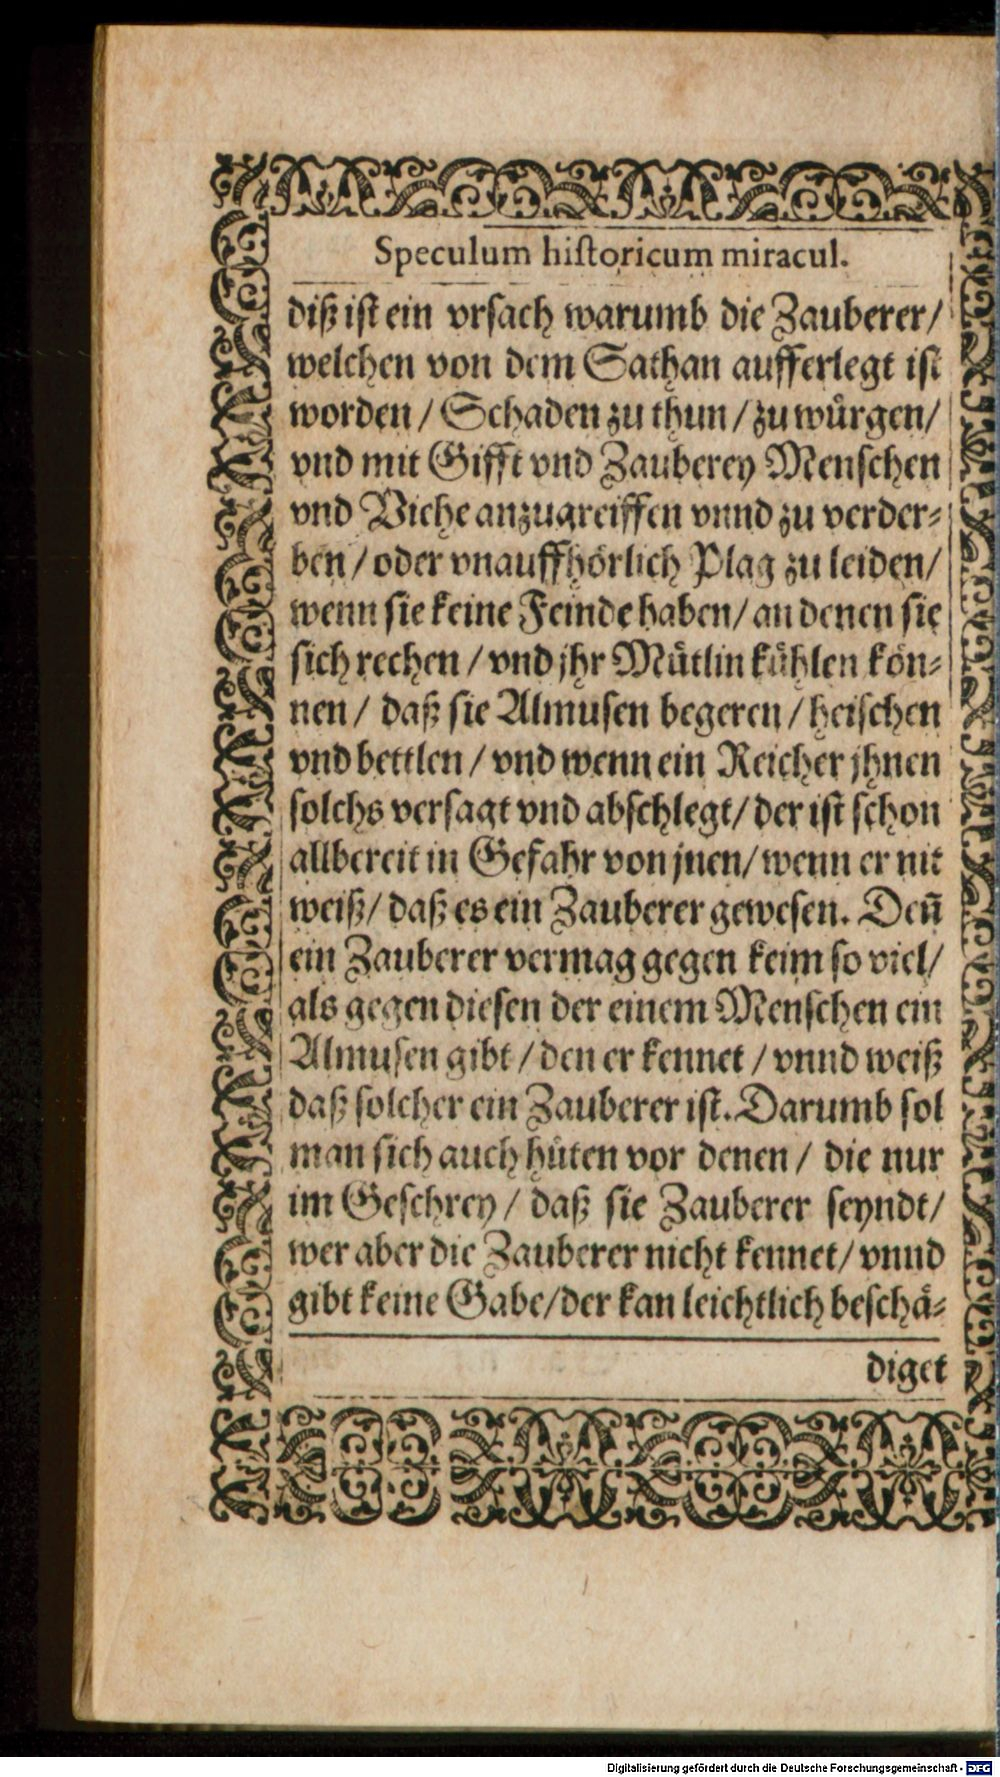 Speculum historicum miracul.
diß ist ein vrsach warumb die Zauberer/
welchen von dem Sathan aufferlegt ist
worden / Schaden zu thun / zu würgen/
vnd mit Gifft vnd Zauberey Menschen
vnd Viehe anzugreiffen vnnd zu verder-
ben / oder vnauffhörlich Plag zu leiden/
wenn sie keine Feinde haben/ an denen sie
sich rechen / vnd jhr Mütlin kühlen kön-
nen / daß sie Almusen begeren / heischen
vnd bettlen / vnd wenn ein Reicher jhnen
solchs versagt vnd abschlegt/ der ist schon
allbereit in Gefahr von jnen/ wenn er nit
weiß/ daß es ein Zauberer gewesen. Deñ
ein Zauberer vermag gegen keim so viel/
als gegen diesen der einem Menschen ein
Almusen gibt / den er kennet / vnnd weiß
daß solcher ein Zauberer ist. Darumb sol
man sich auch hüten vor denen / die nur
im Geschrey / daß sie Zauberer seyndt/
wer aber die Zauberer nicht kennet/ vnnd
gibt keine Gabe/der kan leichtlich beschä-
diget
Digitalisierung gefördert durch die Deutsche Forschungsgemeinschaft - DFG